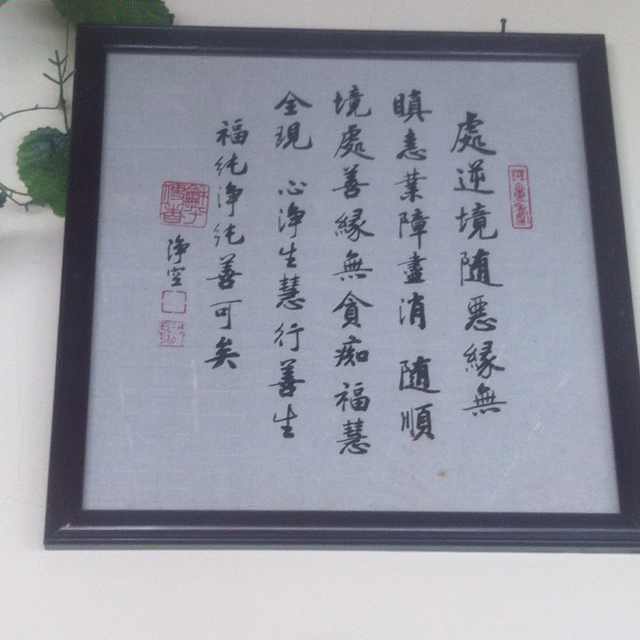 處逆境随惡緣無
瞋恚業障盡消 随順
境處善緣無貪痴福慧
全現 心淨生慧行善生
福純淨純善可矣
淨空